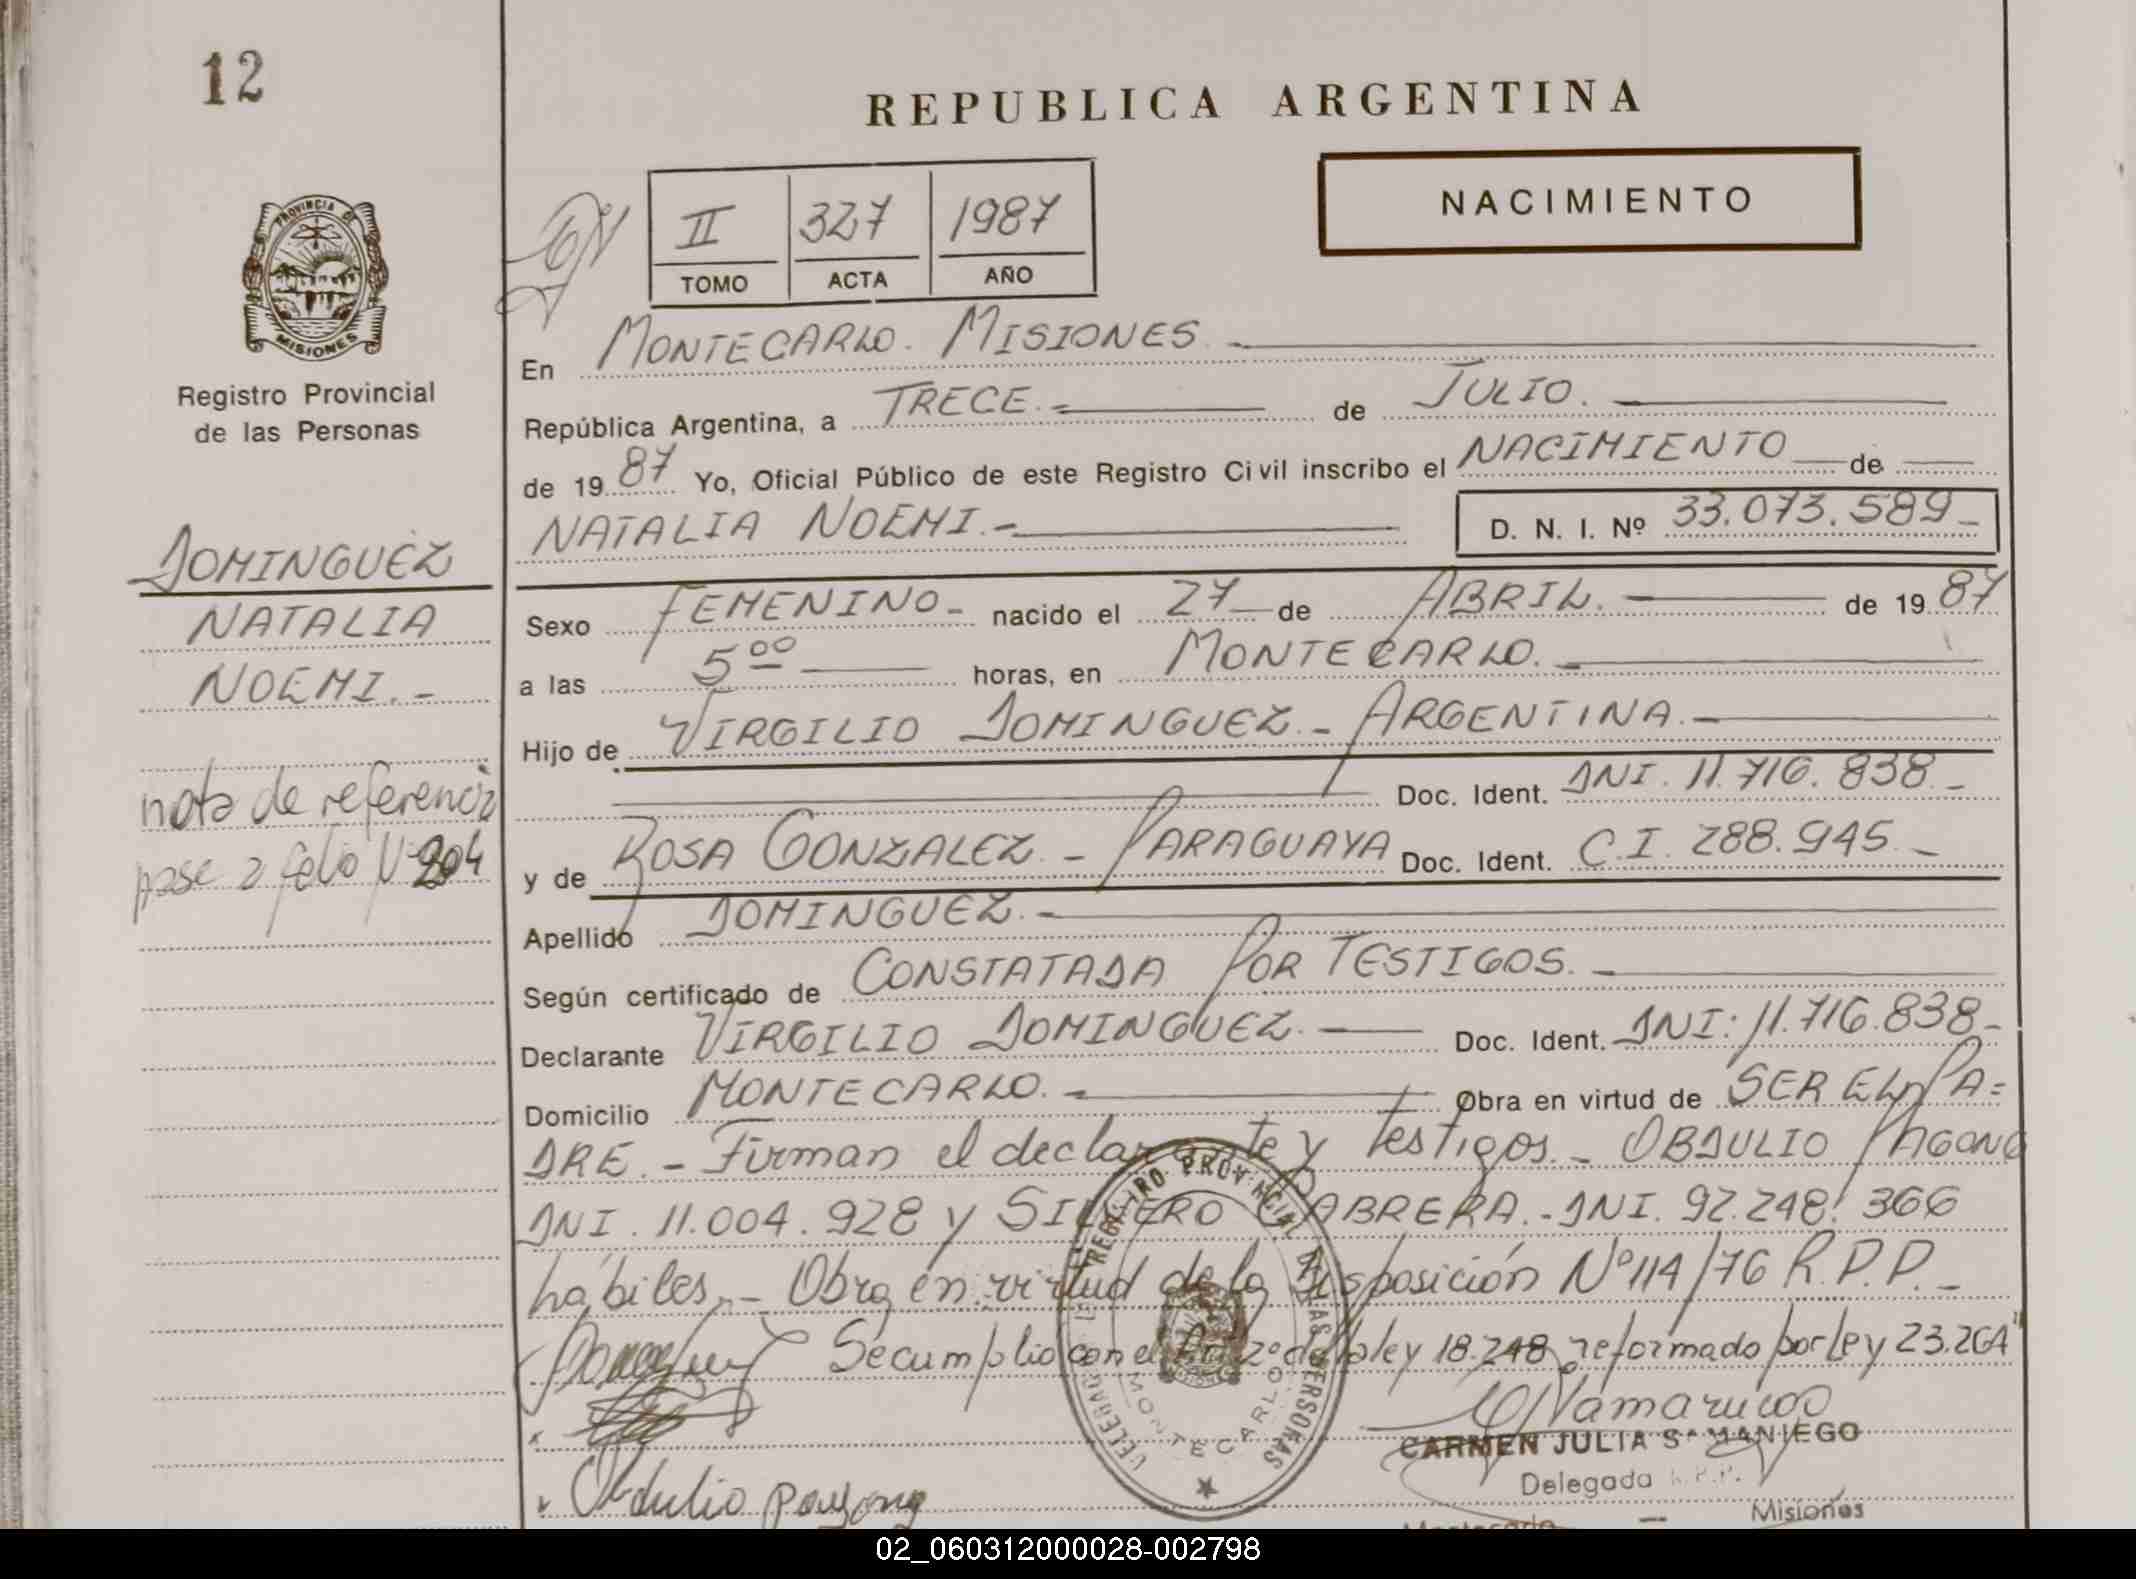 12
REPUBLICA ARGENTINA
NACIMIENTO
II 327 1987
TOMO ACTA AÑO
PROVINCIA DE
MISIONES
Registro Provincial
de las Personas
DOMINGUEZ
NATALIA
NOEMI.-
nota de referencia
pase a folio Nº 204
En MONTECARLO. MISIONES.
República Argentina, a TRECE.- de JULIO.
de 1987 Yo, Oficial Público de este Registro Civil inscribo el NACIMIENTO de
NATALIA NOEMI.- D. N. I. Nº 33.073.589-
Sexo FEMENINO- nacido el 27 de ABRIL. de 1987
a las 5 00 horas, en MONTECARLO.-
Hijo de VIRGILIO DOMINGUEZ.- ARGENTINA.-
Doc. Ident. DNI. 11.716.838.-
y de ROSA GONZALEZ.- PARAGUAYA Doc. Ident. C.I. 288.945.-
Apellido DOMINGUEZ.-
Según certificado de CONSTATADA POR TESTIGOS.-
Declarante VIRGILIO DOMINGUEZ. Doc. Ident. DNI: 11.716.838-
Domicilio MONTECARLO.- Obra en virtud de SER EL PA=
DRE.- Firman el declarante y testigos.- OBDULIO
DNI. 11.004.928 y SILVERO CABRERA.- DNI. 92.248.366
hábiles.- Obra en virtud de la Disposición Nº 114/76 R.P.P.-
Se cumplio con el Art 2º de la ley 18.248, reformado por Ley 23.264"
REGISTRO PROVINCIAL DE LAS PERSONAS
MONTECARLO
CARMEN JULIA SAMANIEGO
Delegada R.P.P.
Obdulio
Montecarlo — Misiones
02_060312000028-002798